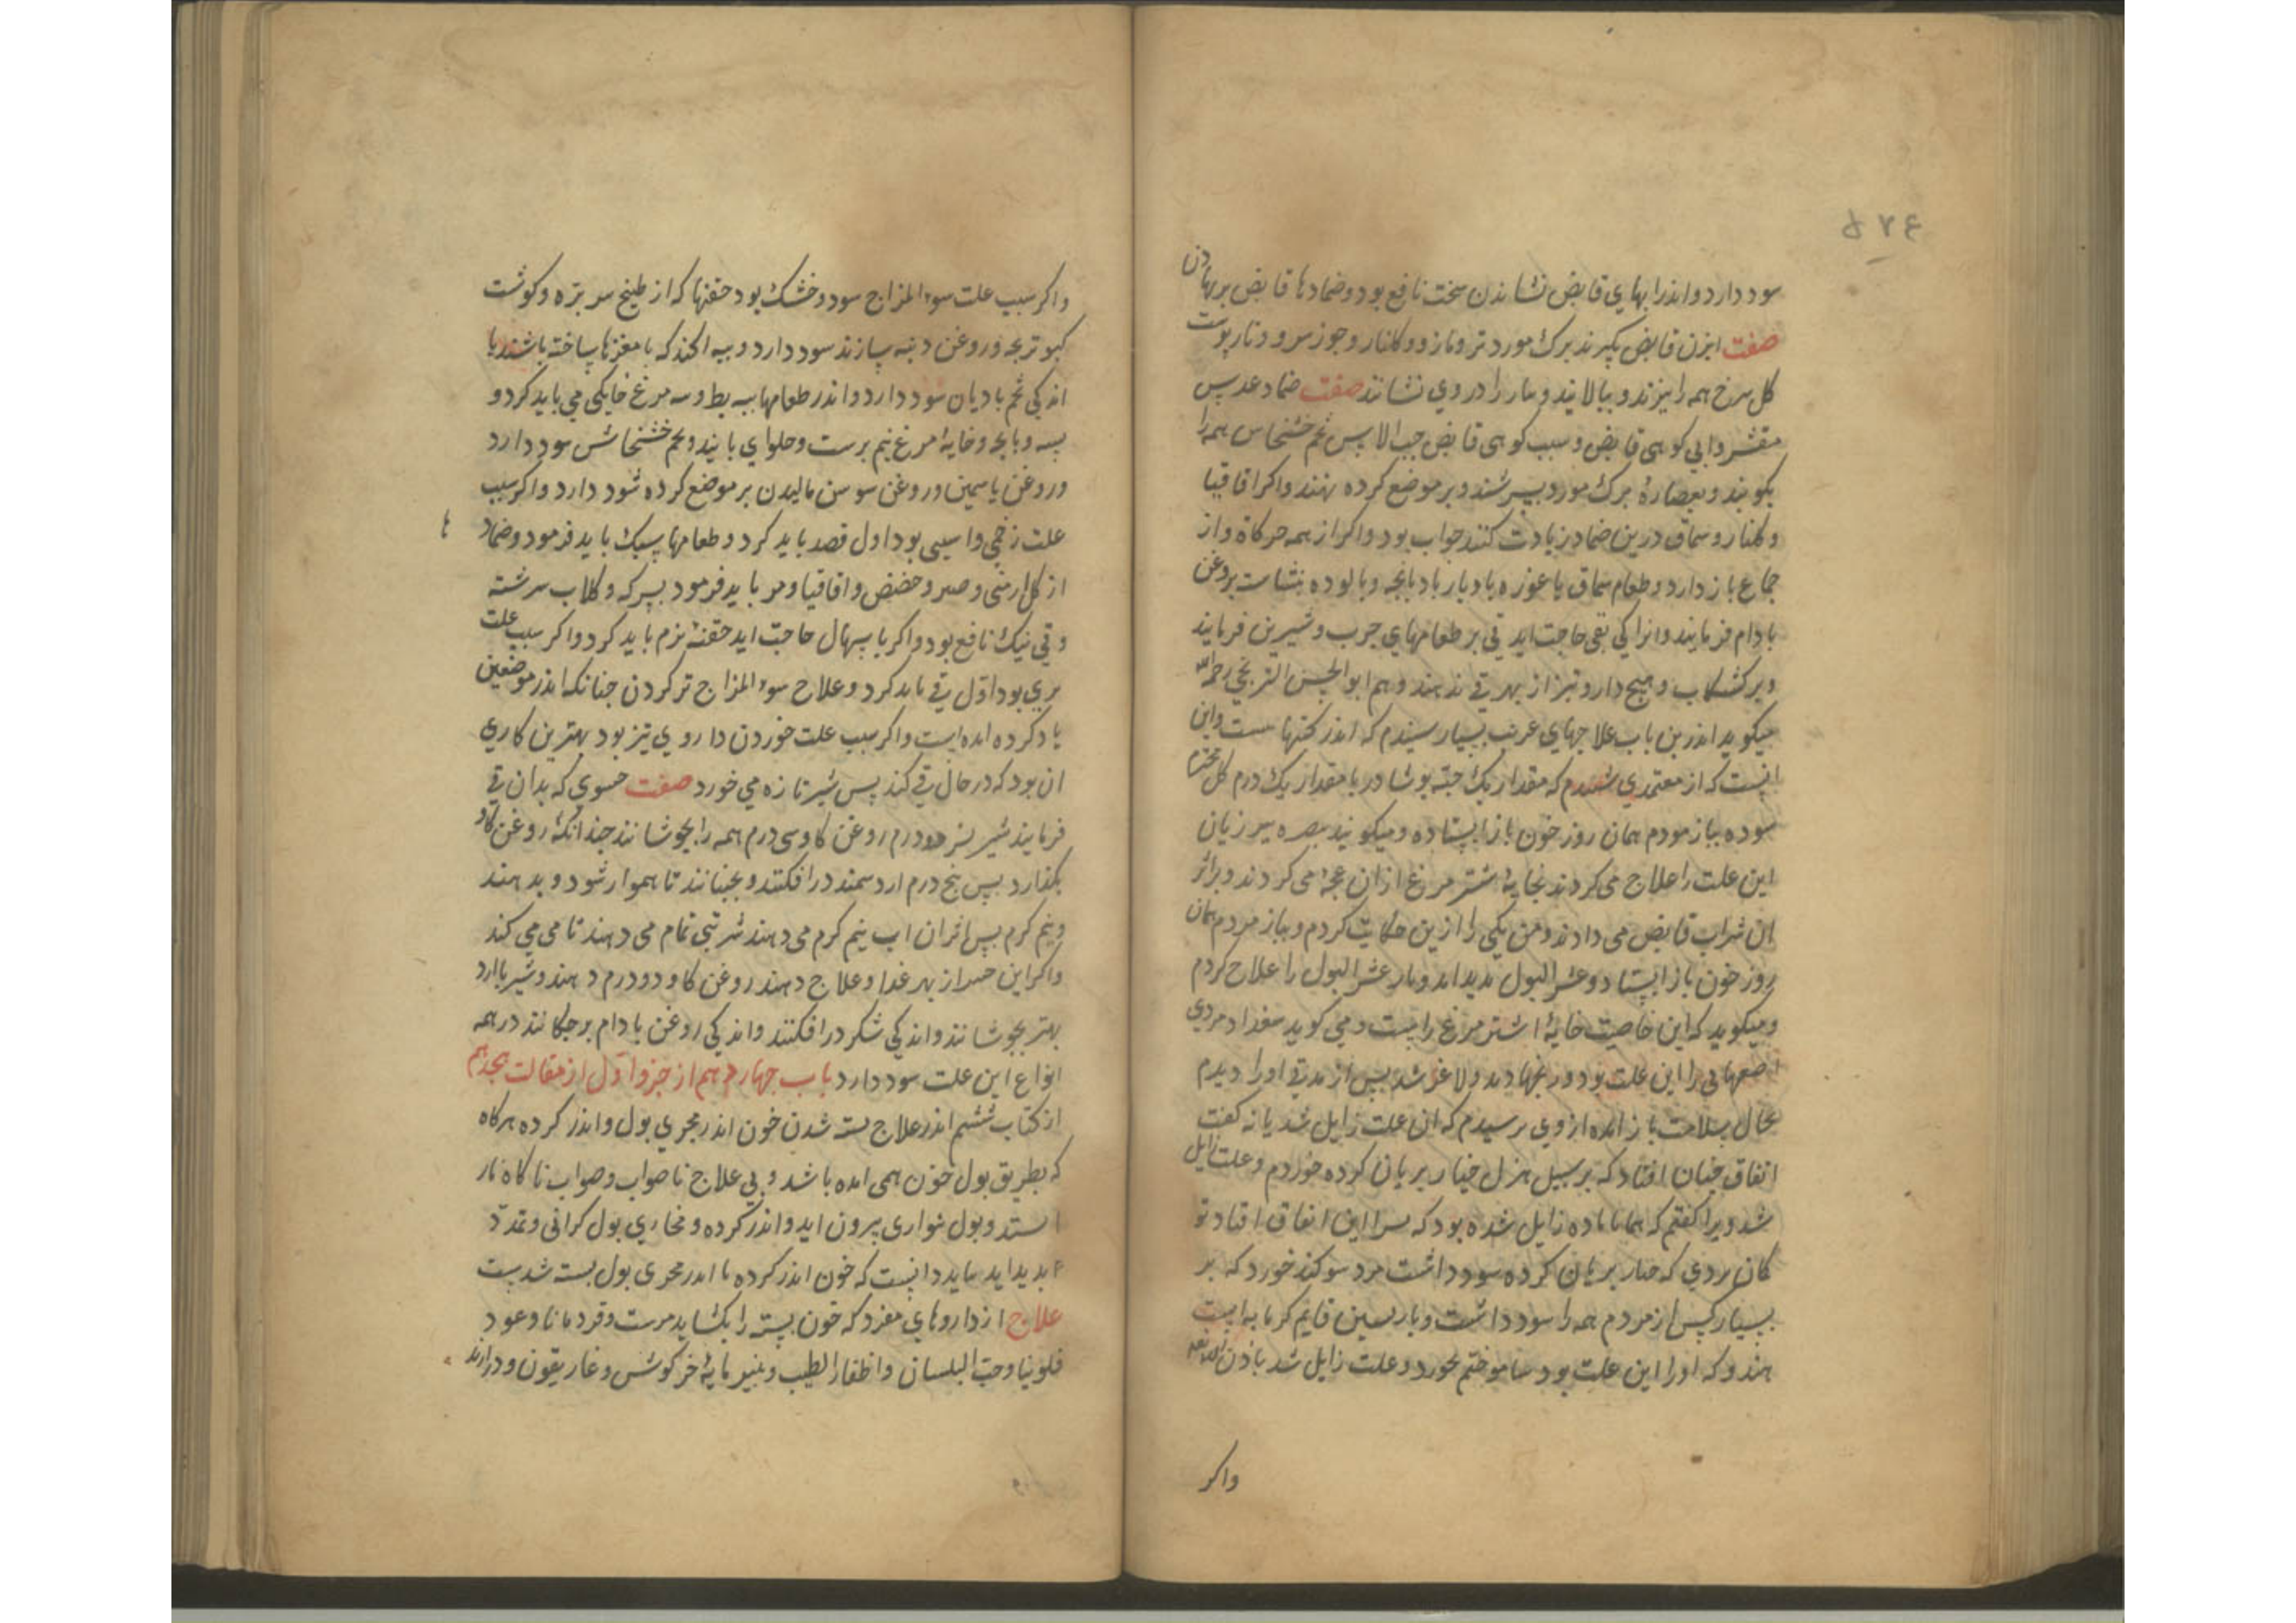 سود دارد و اندر ابهای قابض نشاندن سخت نافع بود و ضمادها قابض برنهادن
صفت ابزن قابض بکیرند برک مورد تر و مازو و کلنار و جوز سرو و نار پوست
کل سرخ همه را بپزند و بپالایند و بیمار را در وی نشانند صفت ضماد عدس
مقشر و ابی کوهی قابض و سیب کوهی قابض حب الاس تخم خشخاش همه را
بکوبند و بعصارهٔ برک مورد بسرشند و بر موضع کرده نهند واکر اقاقیا
و کلنار و سماق درین ضماد زیادت کنند صواب بود واکر از همه حرکاة و از
جماع باز دارد و طعام سماق یا غوره با دیار بادبانجه و بالوده نشاست بروغن
بادام فرمایند و انرا کی بقی حاجت اید قی بر طعامهای چرب و شیرین فرمایند
و بر کشکاب و هیچ دارو تیز از بهر قی ندهند و هم ابو الحسن الترنجی رحمه الله
میکوید اندرین باب علاجهای غریب بسیار شنیدم که اندر کتبها نیست و این
انست که از معتمدی شنیدم که مقدار یک حبه نوشادر با مقدار یک درم کل مختوم
سوده بیازمودم همان روز خون باز ایستاده و میکویند بصره پیر زنان
این علت را علاج می کردند بخایهٔ اشتر مرغ ازان عجه می کردند و بر اثر
ان شراب قابض می دادند و من یکی را ازین حکایت کردم و بیازمودم همان
روز خون باز ایستاد و عسر البول پدید امد و باز عسر البول را علاج کردم
و میکوید که این خاصیت خایهٔ اشتر مرغ راست و می کوید ببغداد مردی
اصفهانی را این علت بود و رنجها دید و لاغر شد پس از مدتی او را دیدم
بحال سلامت باز امده از وی پرسیدم که ان علت زایل شد یا نه کفت
اتفاق چنان افتاد که بر سبیل هزل خیار بریان کرده خوردم و علت زایل
شد ویرا کفتم که همانا ماده زایل شده بود که ترا این اتفاق افتاد تو
کمان بردی که خیار بریان کرده سود داشت مرد سوکند خورد که بر
بسیار کس ازمودم همه را سود داشت و بار پسین قایم کرمابه است
هندو که او را این علت بود بیاموختم بخورد و علت زایل شد باذن الله تعالی
واکر
واکر سبب علت سوء المزاج سرد و خشک بود حقنها که از طبیخ سر بره و کوشت
کبوتر بچه و روغن دنبه سازند سود دارد و پیه الخند که با مغزها ساخته باشند با
اندکی تخم بادیان سود دارد و اندر طعامها پیه بط و پیه مرغ خانکی می باید کرد و
پسته و پاچه و خایهٔ مرغ نیم برشت و حلوای پانید و تخم خشخاش سود دارد
و روغن یاسمین و روغن سوسن مالیدن بر موضع کرده سود دارد واکر سبب
علت زخمی و اسیبی بود اول فصد باید کرد و طعامها سبک باید فرمود و ضماد
از کل ارمنی و صبر و حضض و اقاقیا و مر باید فرمود بسرکه و کلاب سرشته
و قی نیک نافع بود واکر باسهال حاجت اید حقنهٔ نرم باید کرد واکر سبب علت
پری بود اول قی باید کرد و علاج سوء المزاج تر کردن چنانکه اندر موضعین
یاد کرده امده است واکر سبب علت خوردن داروی تیز بود بهترین کاری
ان بود که در حال قی کند پس شیر تازه می خورد صفت حسوی که بدان قی
فرمایند شیر بز دو درم روغن کاو سی درم همه را بجوشانند چندانکه روغن کاو
بکدازد پس پنج درم ارد سمند در افکنند و بجنبانند تا هموار شود و بدهند
و نیم کرم پس اثر ان اب نیم کرم می دهند شربتی تمام می دهند تا قی می کند
واکر این حسو از بهر غدا و علاج دهند روغن کاو دو درم دهند و شیر با ارد
بهتر بجوشانند و اندکی شکر در افکنند و اندکی روغن بادام برچکانند در همه
انواع این علت سود دارد باب چهاردهم از جزو اول از مقالت هجدهم
از کتاب ششم اندر علاج بسته شدن خون اندر مجری بول و اندر کرده هرکاه
که بطریق بول خون همی امده باشد و بی علاج ناصواب و صواب ناکاه باز
استد و بول بدشواری بیرون اید و اندر کرده و مجاری بول کرانی و تمدد
پدید اید بباید دانست که خون اندر کرده یا اندر مجری بول بسته شدست
علاج از داروهای مفرد که خون بسته را بکشاید مرست و قردمانا و عود
فاونیا و حب البلسان و اظفار الطیب و پنیر مایهٔ خرکوش و غاریقون و درازند